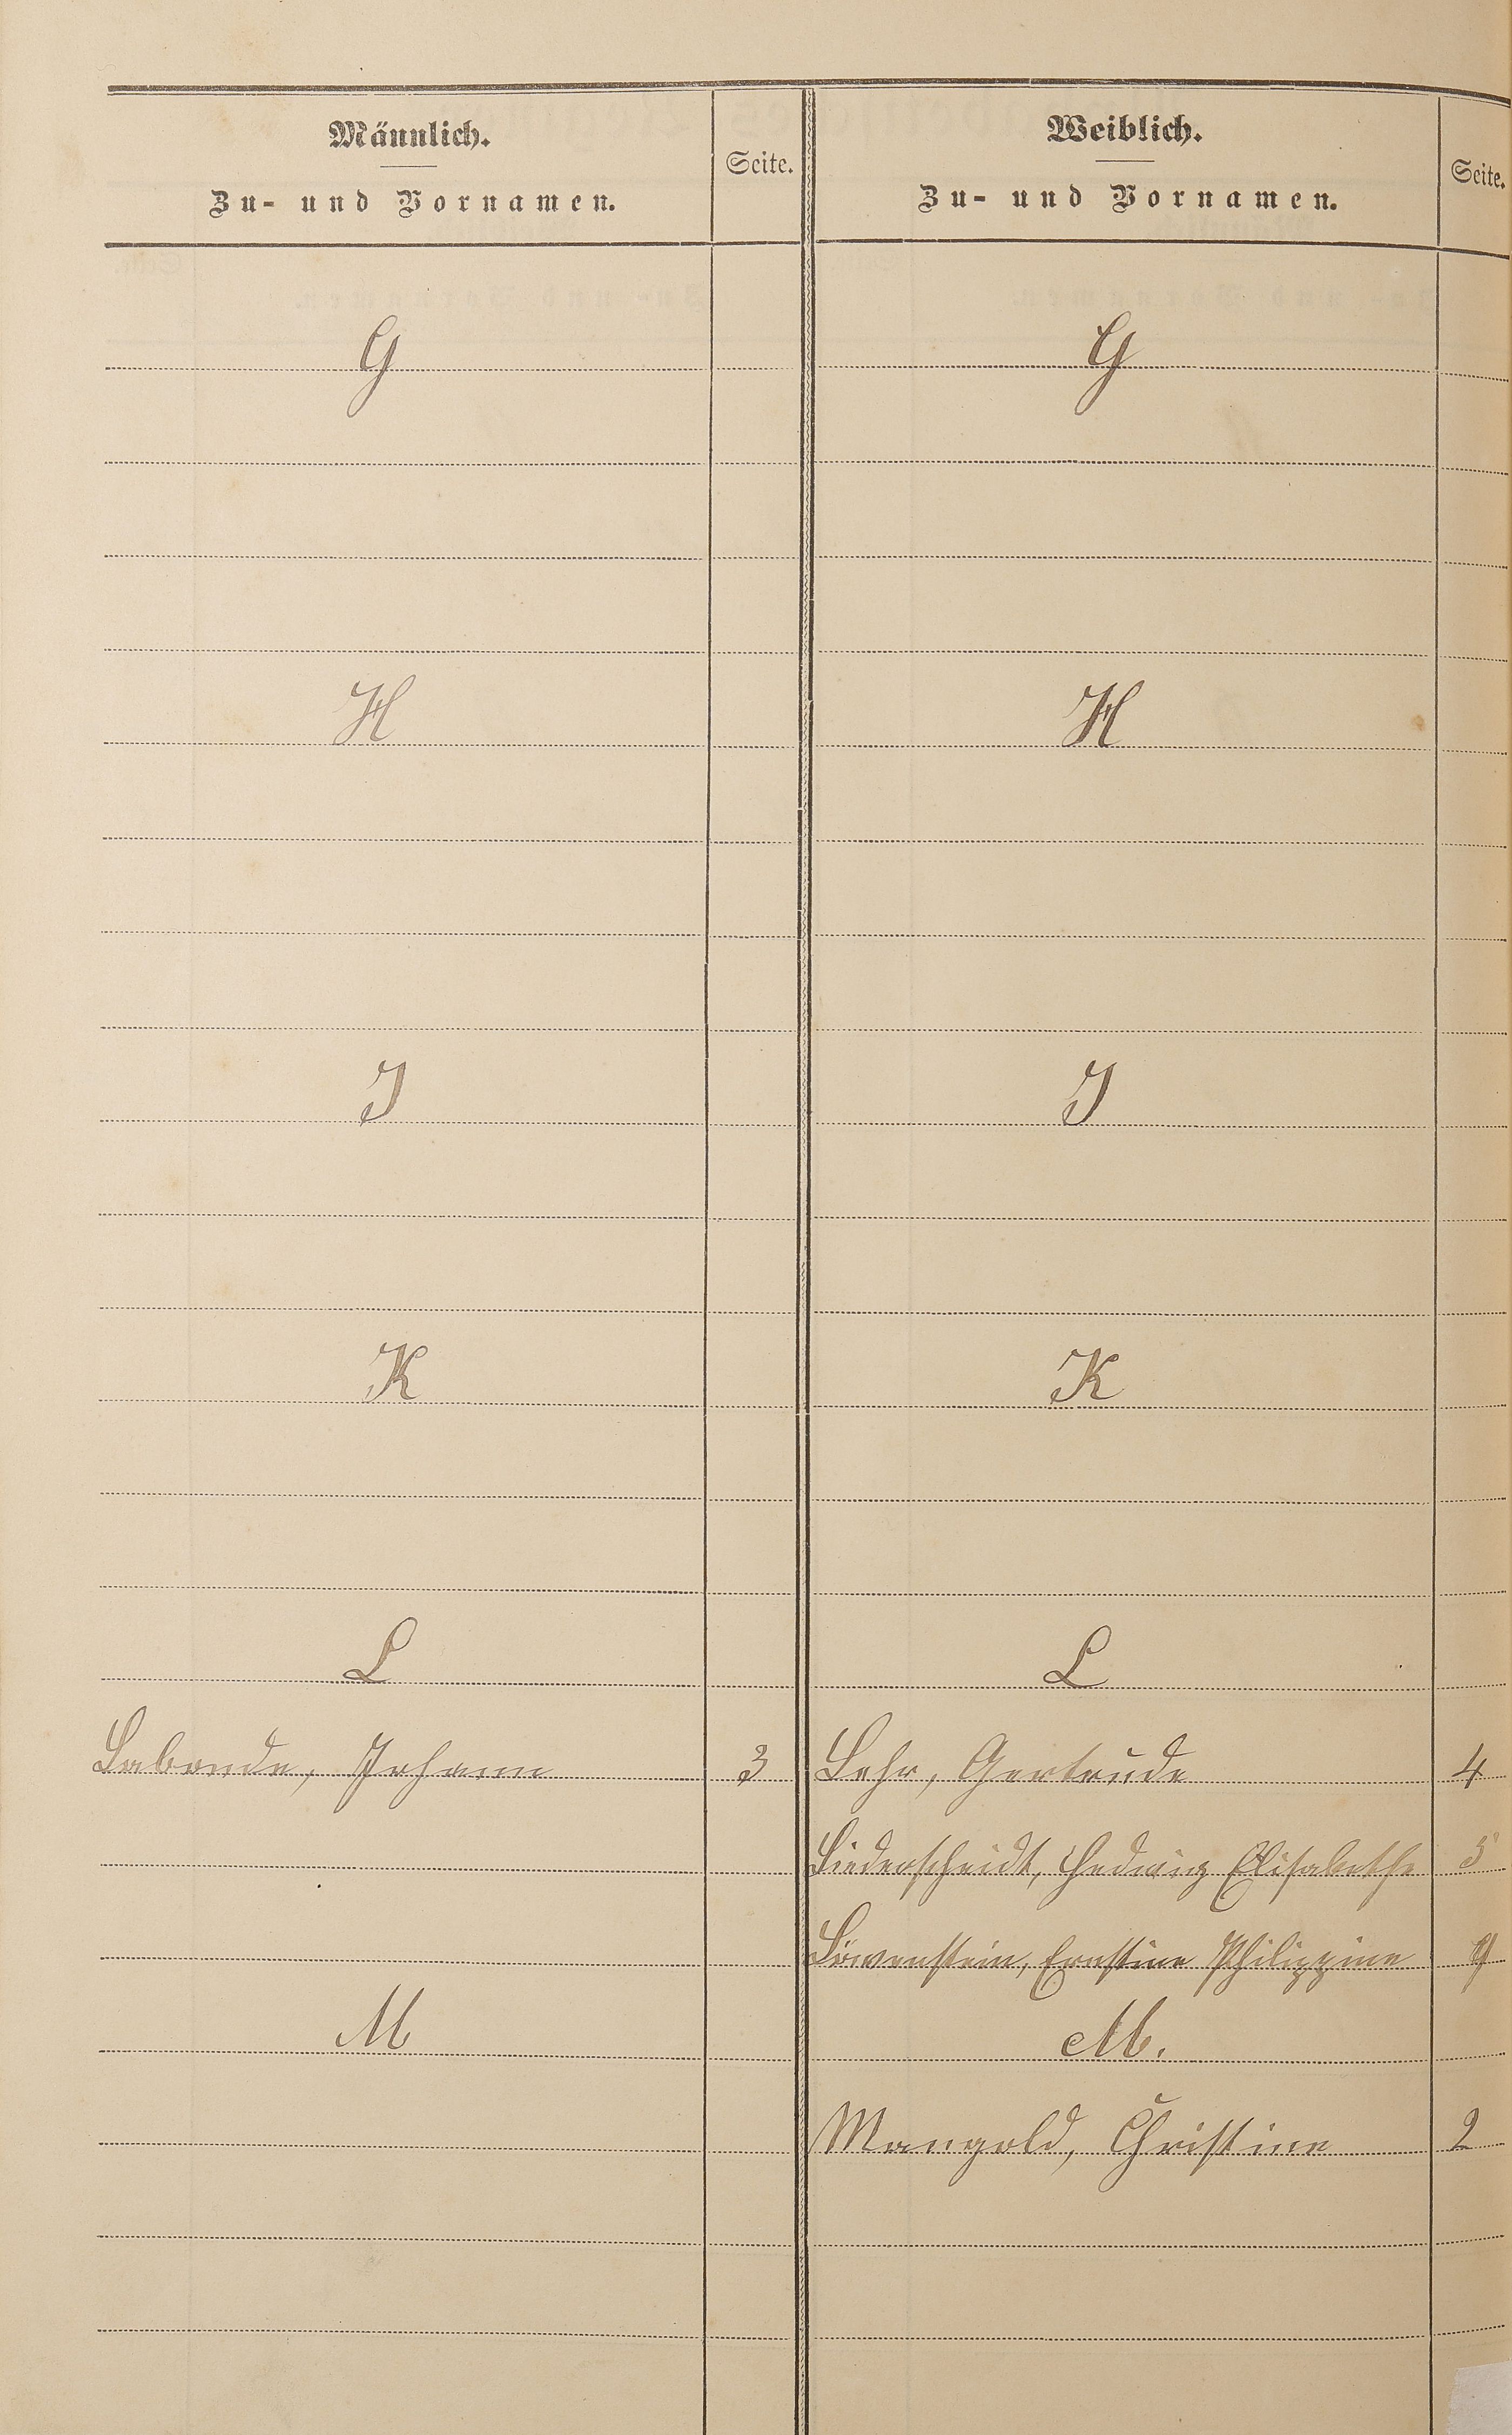 Männlich.
Zu- und Vornamen.
Seite.
Weiblich.
Zu- und Vornamen.
Seite.
G
G
H
H
J
J
K
K
L
L
Labonde, Johann 3
Lehr, Gertrude 4
Liederscheidt, Hedwig Elisabethe 5
Löwenstein, Ernstine Philippine 9
M
M.
Mangold, Christine 2